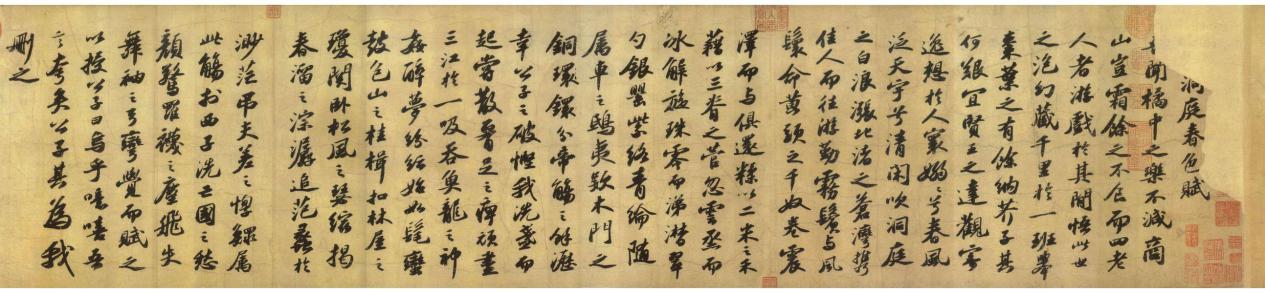 洞庭春色賦
聞橘中之樂不減商
山豈霜餘之不食而四老
人者游戲於其間悟此世
之泡幻藏千里於一班舉
棗葉之有餘納芥子其
何艱宜賢王之達觀寄
逸想於人寰嫋嫋兮春風
泛天宇兮清閑吹洞庭
之白浪漲北渚之蒼灣攜
佳人而往游勤霧鬢與風
鬟命黃頭之千奴卷震
澤而與俱還糅以二米之禾
藉以三脊之菅忽雲烝而
冰解旋珠零而涕潸翠
勺銀罌紫絡青綸隨
属車之鴟夷款木門之
銅環鏁分帝觴之餘瀝
幸公子之破慳我洗盞而
起嘗散腰足之痹頑盡
三江於一吸吞魚龍之神
姦醉夢紛紜始如髦蠻
鼓包山之桂楫扣林屋之
瓊關臥松風之瑟縮揭
春溜之淙潺追范蠡於
渺茫弔夫差之惸鰥屬
此觴於西子洗亡國之愁
顏驚羅襪之塵飛失
舞袖之弓彎覺而賦之
以授公子曰烏乎噫嘻吾
言夸矣公子其為我
刪之